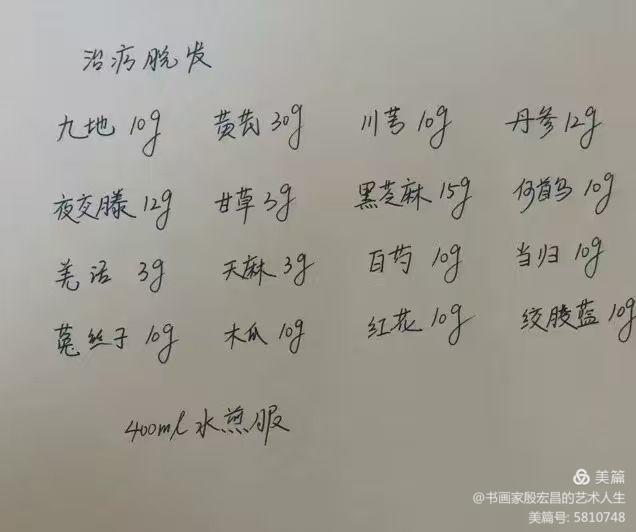 治疗脱发
九地 10g 黄芪 30g 川芎 10g 丹参 12g
夜交滕 12g 甘草 3g 黑芝麻 15g 何首乌 10g
羌活 3g 天麻 3g 白芍 10g 当归 10g
菟丝子 10g 木瓜 10g 红花 10g 绞股蓝 10g
400ml 水煎服
美篇
@书画家殷宏昌的艺术人生
美篇号: 5810748